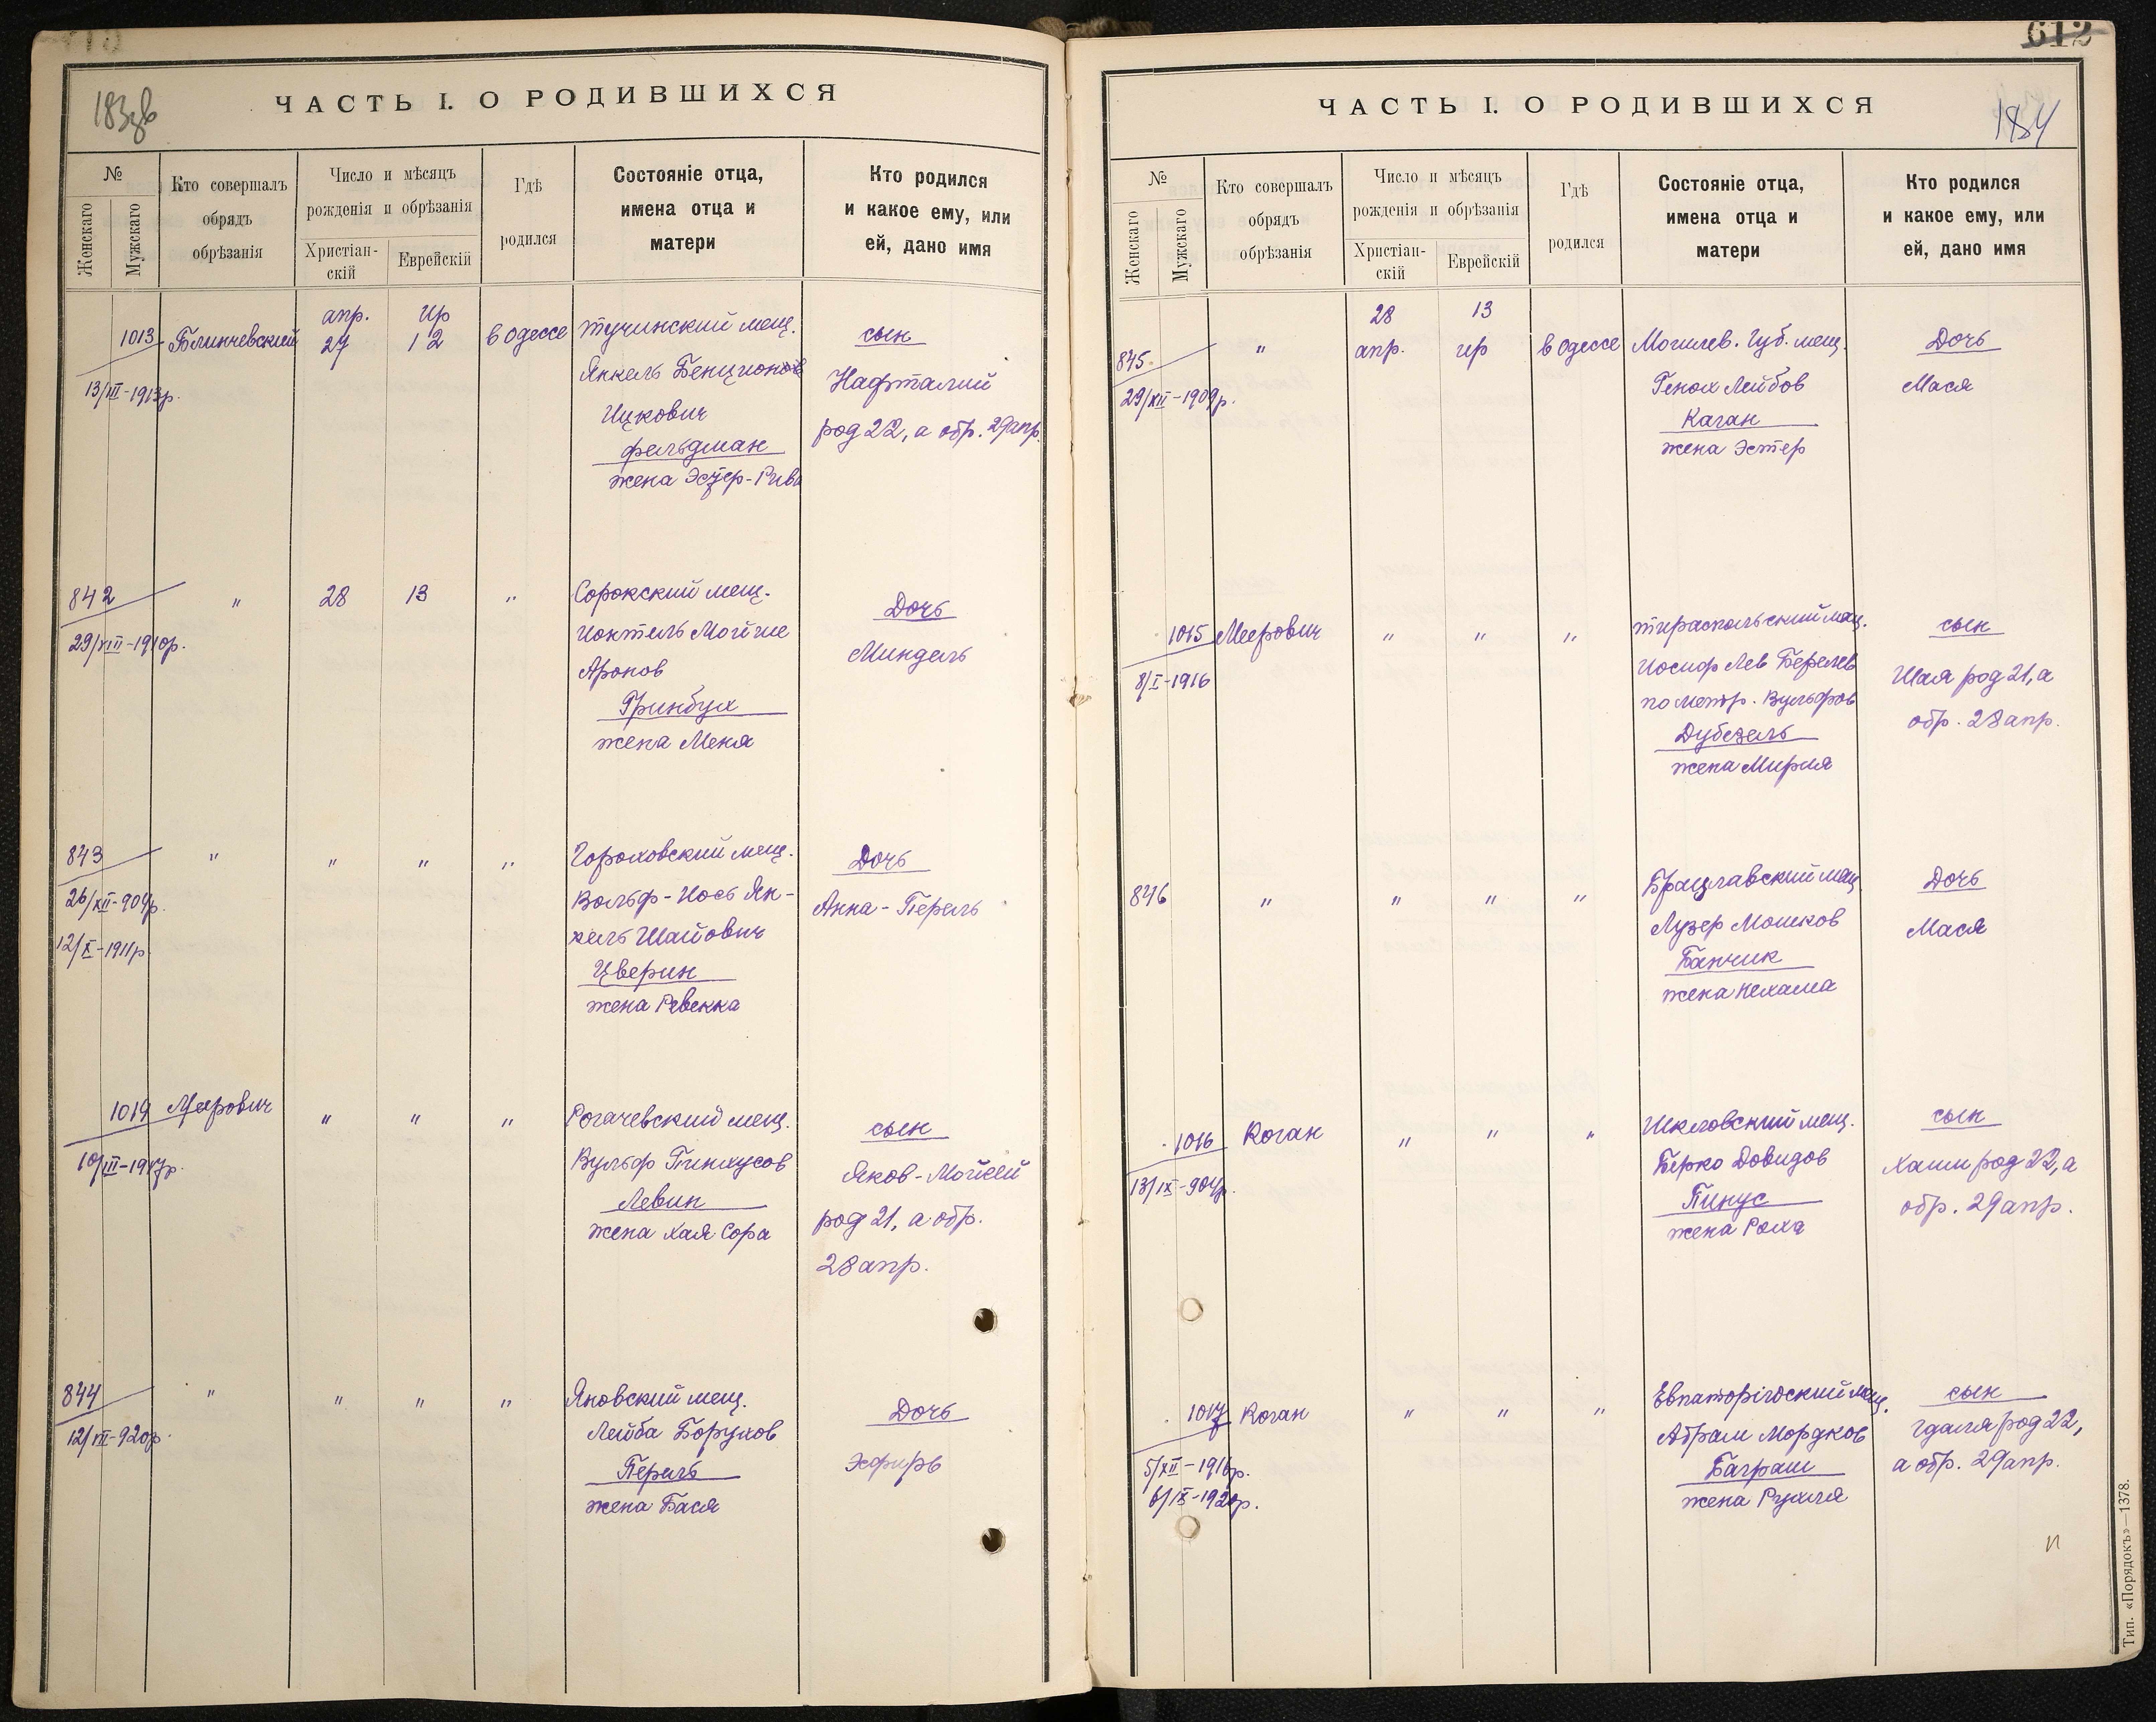 183зв
ЧАСТЬ I. О РОДИВШИХСЯ
№
Женскаго
Мужскаго
Кто совершалъ
обрядъ
обрѣзанія
Число и мѣсяцъ
рожденія и обрѣзанія
Христіан-
скій
Еврейскій
Гдѣ
родился
Состояніе отца,
имена отца и
матери
Кто родился
и какое ему, или
ей, дано имя
1013 Блинчевский апр. 27 ир 12 в Одессе тучинский мещ. сын
13/III-1913р.
Янкель Бенционов Нафталий
Ицкович род 22, а обр. 29 апр.
Фельдман
жена Эстер-Рива
842 " 28 13 " Сорокский мещ. Дочь
29/VIII-1910р.
Иоктель Мойше Миндель
Аронов
Гринбух
жена Меня
843 " " " " Гороховский мещ. Дочь
26/XII-909р.
12/X-1911р.
Вольф-Иось Ян- Анна-Перель
кель Шайович
Цверин
жена Ревекка
1019 Меерович " " " Рогачевский мещ. сын
10/III-1917р.
Вульф Пинхусов Яков-Мойсей
Левин род 21, а обр.
жена Хая Сора 28 апр.
844 " " " " Яновский мещ. Дочь
12/VIII-920р.
Лейба Борухов Эсфирь
Перель
жена Бася
612
184
ЧАСТЬ I. О РОДИВШИХСЯ
№
Женскаго
Мужскаго
Кто совершалъ
обрядъ
обрѣзанія
Число и мѣсяцъ
рожденія и обрѣзанія
Христіан-
скій
Еврейскій
Гдѣ
родился
Состояніе отца,
имена отца и
матери
Кто родился
и какое ему, или
ей, дано имя
845 " 28 апр. 13 ир в Одессе Могилев. Губ. мещ. Дочь
29/XII-1909р.
Генох Лейбов Мася
Каган
жена Эстер
1015 Меерович " " " тираспольский мещ. сын
8/I-1916
Иосиф Лев Берелев Шая род 21, а
по метр. Вульфов обр. 28 апр.
Дубезель
жена Мирия
846 " " " " Брацлавский мещ. Дочь
Лузер Мошков Мася
Банчик
жена Нехама
1016 Коган " " " Шкловский мещ. сын
13/IX-904р.
Берко Довидов Хаим род 22, а
Пинус обр. 29 апр.
жена Роха
1017 Коган " " " Евпаторійский мещ. сын
5/XII-1916р.
6/IX-1920р.
Абрам Мордков Гдаля род 22,
Баграш а обр. 29 апр.
жена Рухля
Тип. «Порядокъ»—1378.